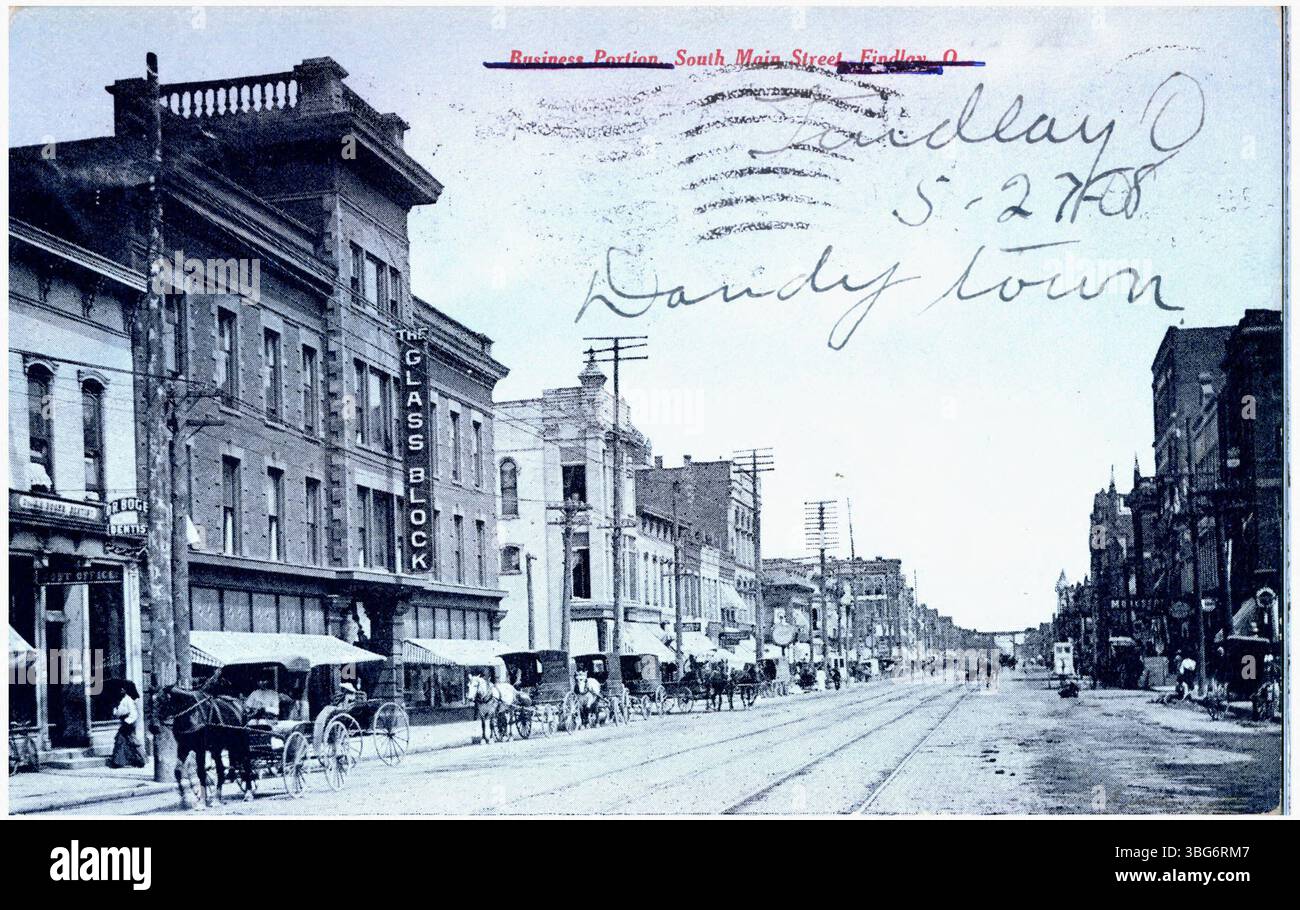 Business Portion, South Main Street, Findlay, O.
Findlay O
5-27-08
Dandy town
THE
GLASS BLOCK
DENTIST
POST OFFICE
a
alamy
Image ID: 3BG6RM7
www.alamy.com